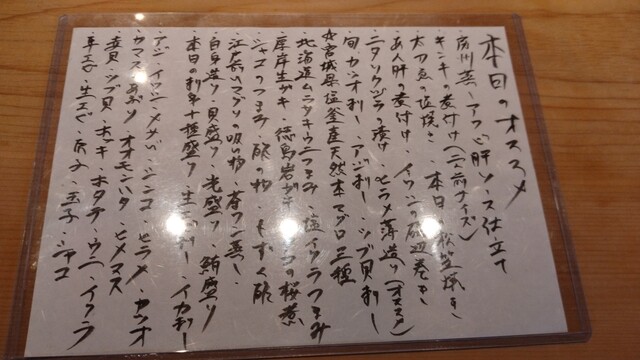 本日のオススメ
・房州蒸しアワビ肝ソース仕立て
・キンキの煮付け(二人前サイズ)
・太刀魚の塩焼き 本日の松笠焼き
・あん肝の煮付け・イワシの磯辺巻き
・ニタリクジラの漬け・ヒラメ薄造り(オススメ)
・旬カツオ刺し・アジ刺し・ツブ貝刺し
☆宮城県塩釜産天然本マグロ三種
・北海道ムラサキウニつまみ・塩イクラつまみ
・厚岸生ガキ・徳島岩ガキ・タコの桜煮
・シャコのつまみ・酢の物・もずく酢
・江戸前ハマグリの吸い物・茶ワン蒸し
・白身造り・貝盛り・光盛り・鮪盛り
・本日の刺身十種盛り・生エビ刺し・イカ刺し
・アジ・イワシ・〆サバ・シンコ・ヒラメ・カツオ
・カマス・あおり・オオモンハタ・ヒメマス
・赤貝・ツブ貝・ホッキ・ホタテ・ウニ・イクラ
・車エビ・生エビ・穴子・玉子・シャコ